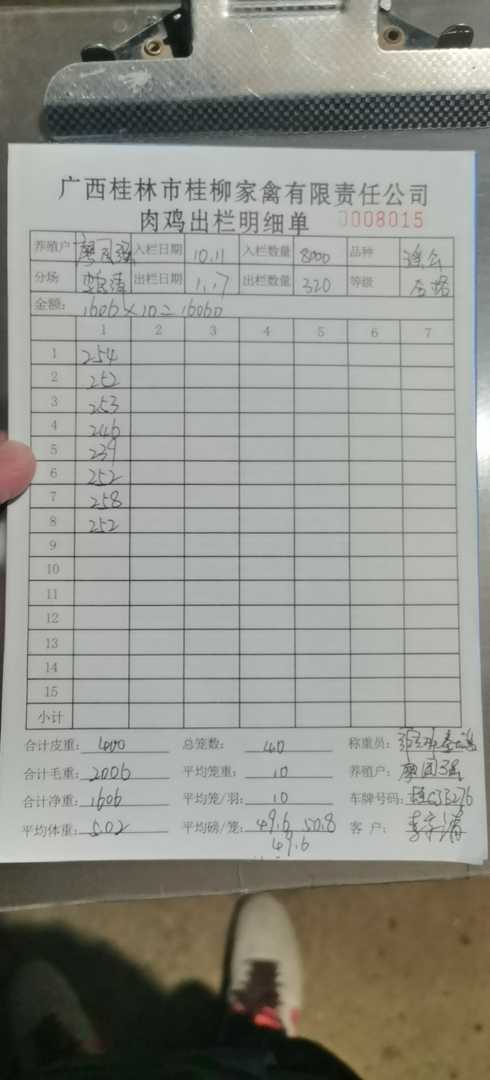 广西桂林市桂柳家禽有限责任公司
肉鸡出栏明细单 0008015
养殖户 廖国强 入栏日期 10.11 入栏数量 8000 品种
分场 出栏日期 1.17 出栏数量 320 等级 合格
金额: 1606×10=16060
1 2 3 4 5 6 7
1 254
2 252
3 253
4 246
5 239
6 252
7 258
8 252
9
10
11
12
13
14
15
小计
合计皮重: 400 总笼数: 40 称重员:
合计毛重: 2006 平均笼重: 10 养殖户: 廖国强
合计净重: 1606 平均笼/羽: 10 车牌号码:
平均体重: 5.02 平均磅/笼: 49.6 50.8 客 户:
49.6